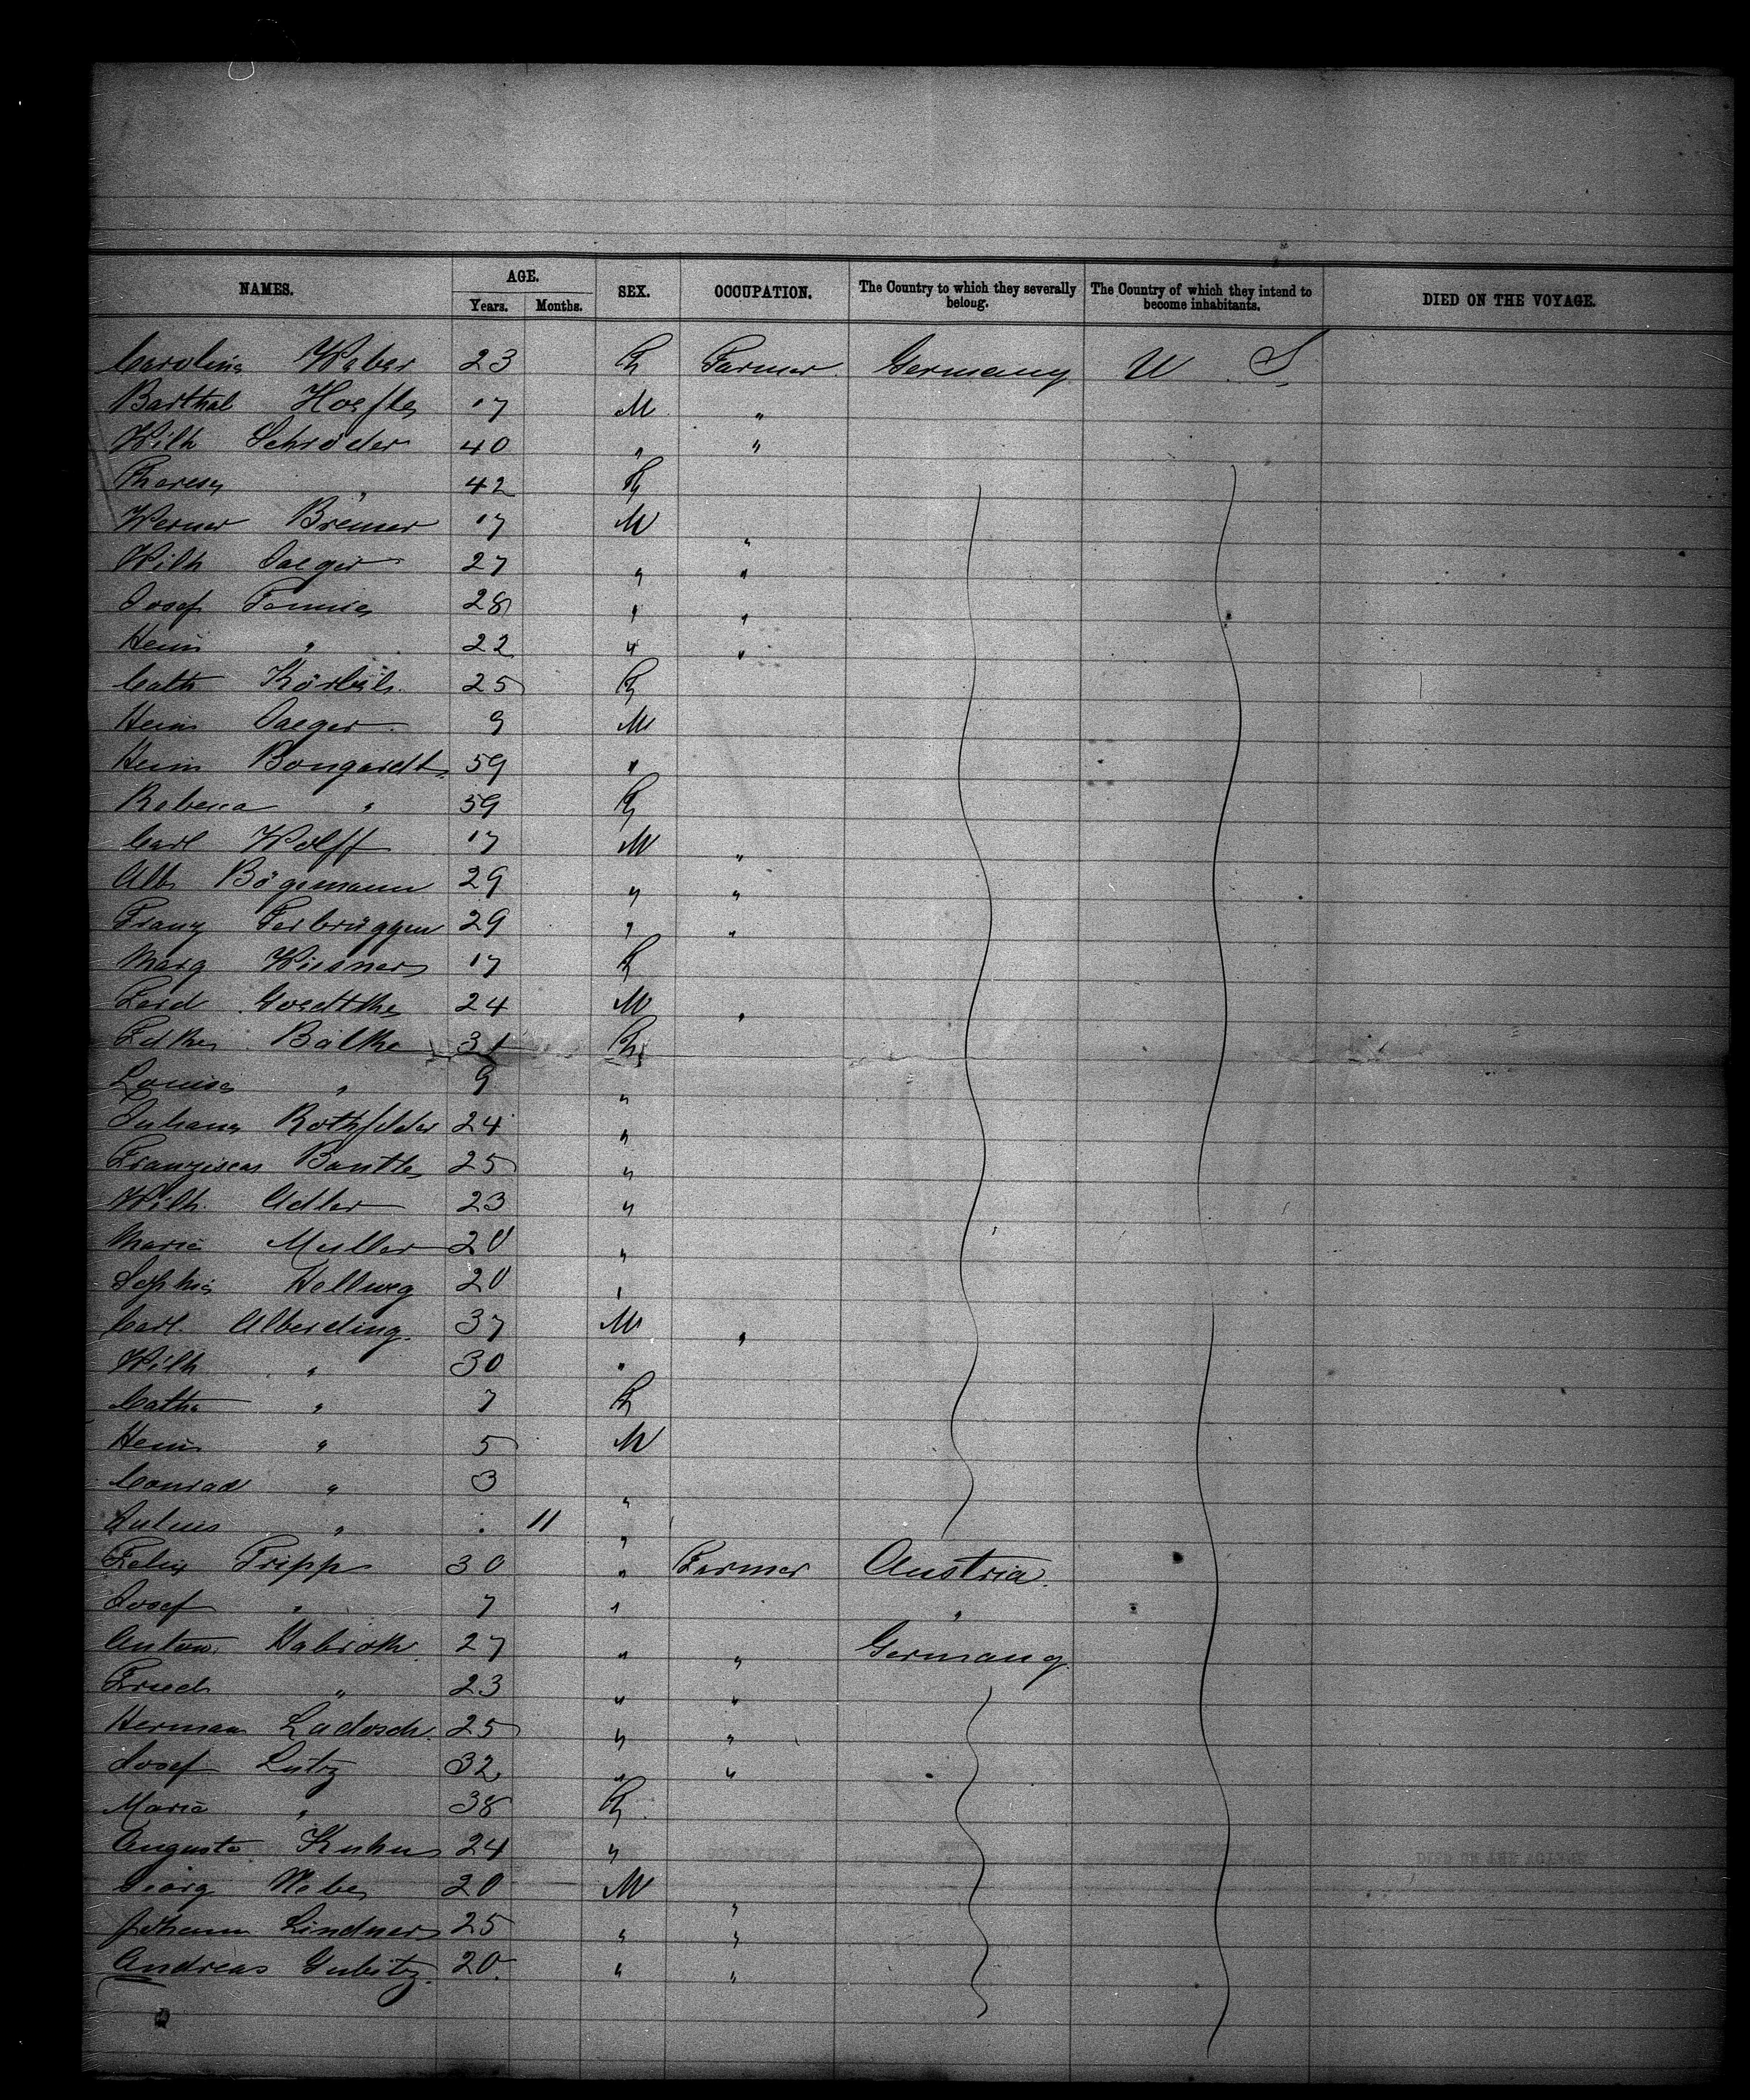 NAMES. AGE. SEX. OCCUPATION. The Country to which they severally belong. The Country of which they intend to become inhabitants. DIED ON THE VOYAGE.
Years. Months.
Carolina Weber 23 Farmer Germany U S
Barthol Hoefle 17 M "
Wilh Schröder 40 " "
Therese " 42
Werner Bremer 17 M "
Wilh Jaeger 27 " "
Josef 28 " "
Heinr " 22 " "
Cath 25
Heinr Jaeger 9 M
Heinr Bongardt 59 "
Rebecca " 59
Carl Wolff 17 M "
Alb Bögemann 29 " "
Franz Terbrüggen 29 " "
Marg Wiesner 17
Ferd Goedtke 24 M "
Balke 31
Louise " 9 "
Juliana Rothfelder 24 "
Franzisca Bantle 25 "
Wilh. Adler 23 "
Maria Muller 20 "
Sophia Hellweg 20 "
Carl Alberding 37 M "
Wilh " 30 "
Cath " 7
Heinr " 5 M
Conrad " 3 "
Julius " 11 "
Felix Tripp 30 " Farmer Austria
Josef " 7 " "
Anton 27 " " Germany
Friedr " 23 " "
Herman Ladosch 25 " "
Josef Lutz 32 " "
Maria " 38
Auguste Kuhn 24 "
Georg Weber 20 M "
Johann Lindner 25 " "
Andreas Gubitz 20 " "